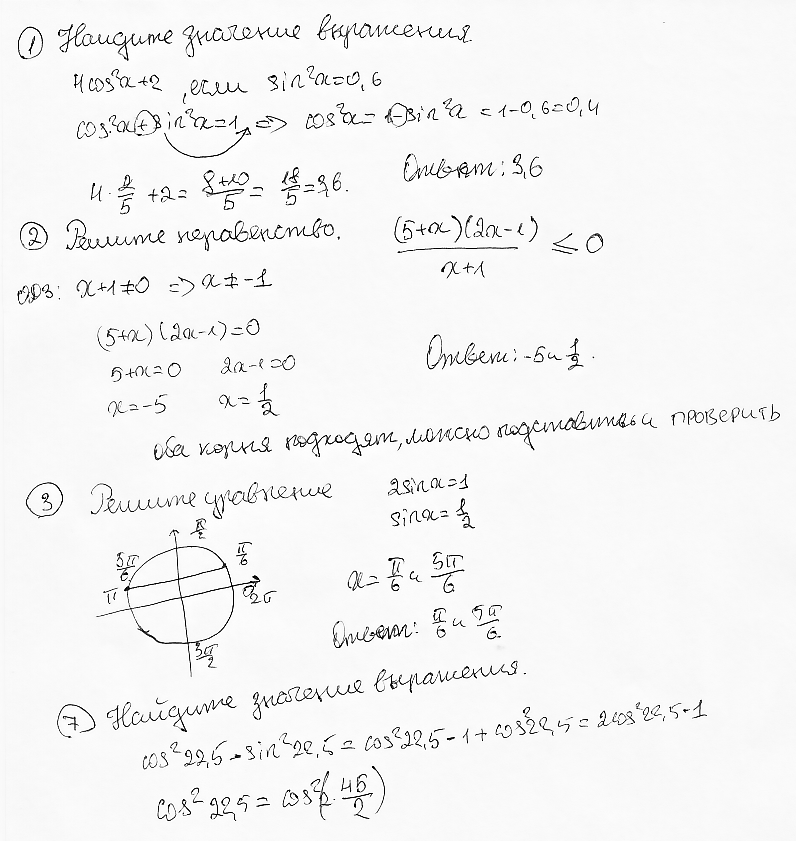 ① Найдите значение выражения
4cos²x+2, если sin²x=0,6
cos²x+sin²x=1 => cos²x=1-sin²x =1-0,6=0,4
4·2/5+2= (8+10)/5= 18/5=3,6.
Ответ: 3,6
② Решите неравенство. (5+x)(2x-1)/(x+1) ≤0
ОДЗ: x+1≠0 => x≠-1
(5+x)(2x-1)=0
5+x=0 2x-1=0
x=-5 x=1/2
Ответ: -5 и 1/2.
оба корня подходят, можно подставить и проверить
③ Решите уравнение 2sinx=1
sinx=1/2
π/2
5π/6 π/6
π 0 2π
3π/2
x=π/6 и 5π/6
Ответ: π/6 и 5π/6.
⑦ Найдите значение выражения.
cos²22,5-sin²22,5=cos²22,5-1+cos²22,5=2cos²22,5-1
cos²22,5=cos²(2·45/2)